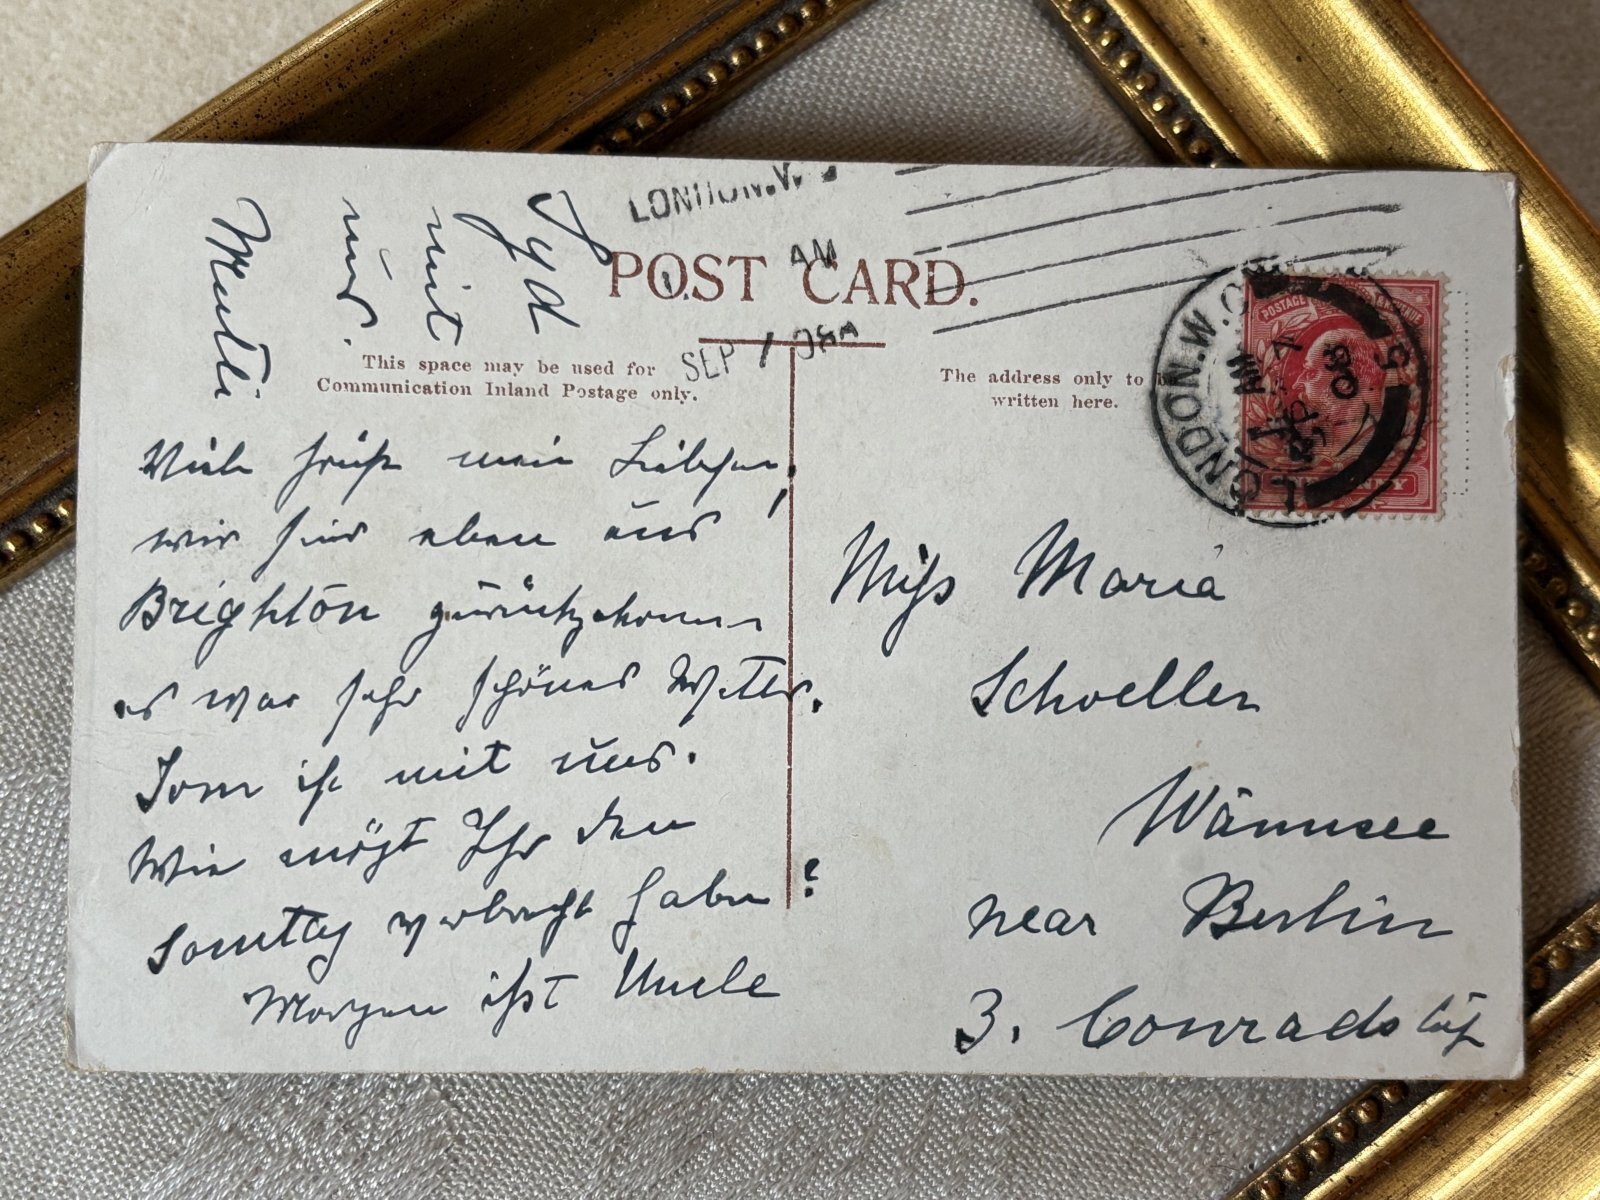 LONDON.W.
AM
SEP 7 08
POST CARD.
This space may be used for
Communication Inland Postage only.
The address only to be
written here.
POSTAGE REVENUE
ONE PENNY
LONDON.W.C
AM
SEP 7
08
5
Viele Grüße mein Liebchen,
wir sind eben aus
Brighton zurückgekommen
es war sehr schönes Wetter.
Tom ist mit uns.
Wie mögt Ihr den
Sonntag verbracht haben?
Morgen ißt Uncle
Syd
mit
uns.
Mutti
Miss Maria
Schoeller
Wannsee
near Berlin
3. Conrads